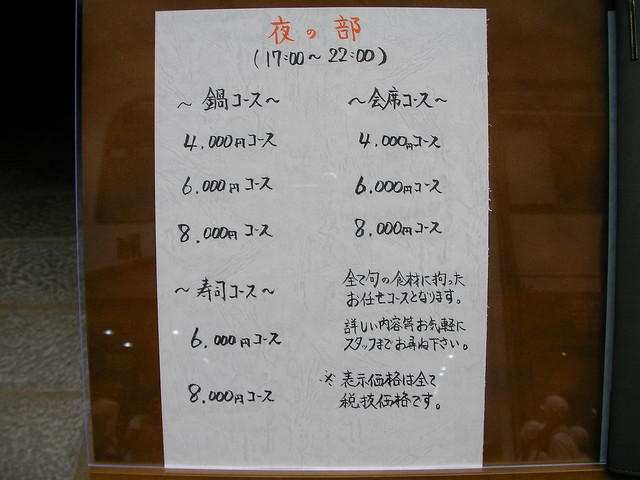 夜の部
(17:00～22:00)
～鍋コース～
4.000円コース
6.000円コース
8.000円コース
～寿司コース～
6.000円コース
8.000円コース
～会席コース～
4.000円コース
6.000円コース
8.000円コース
全て旬の食材に拘った
お任せコースとなります。
詳しい内容等お気軽に
スタッフまでお尋ね下さい。
※表示価格は全て
税抜価格です。